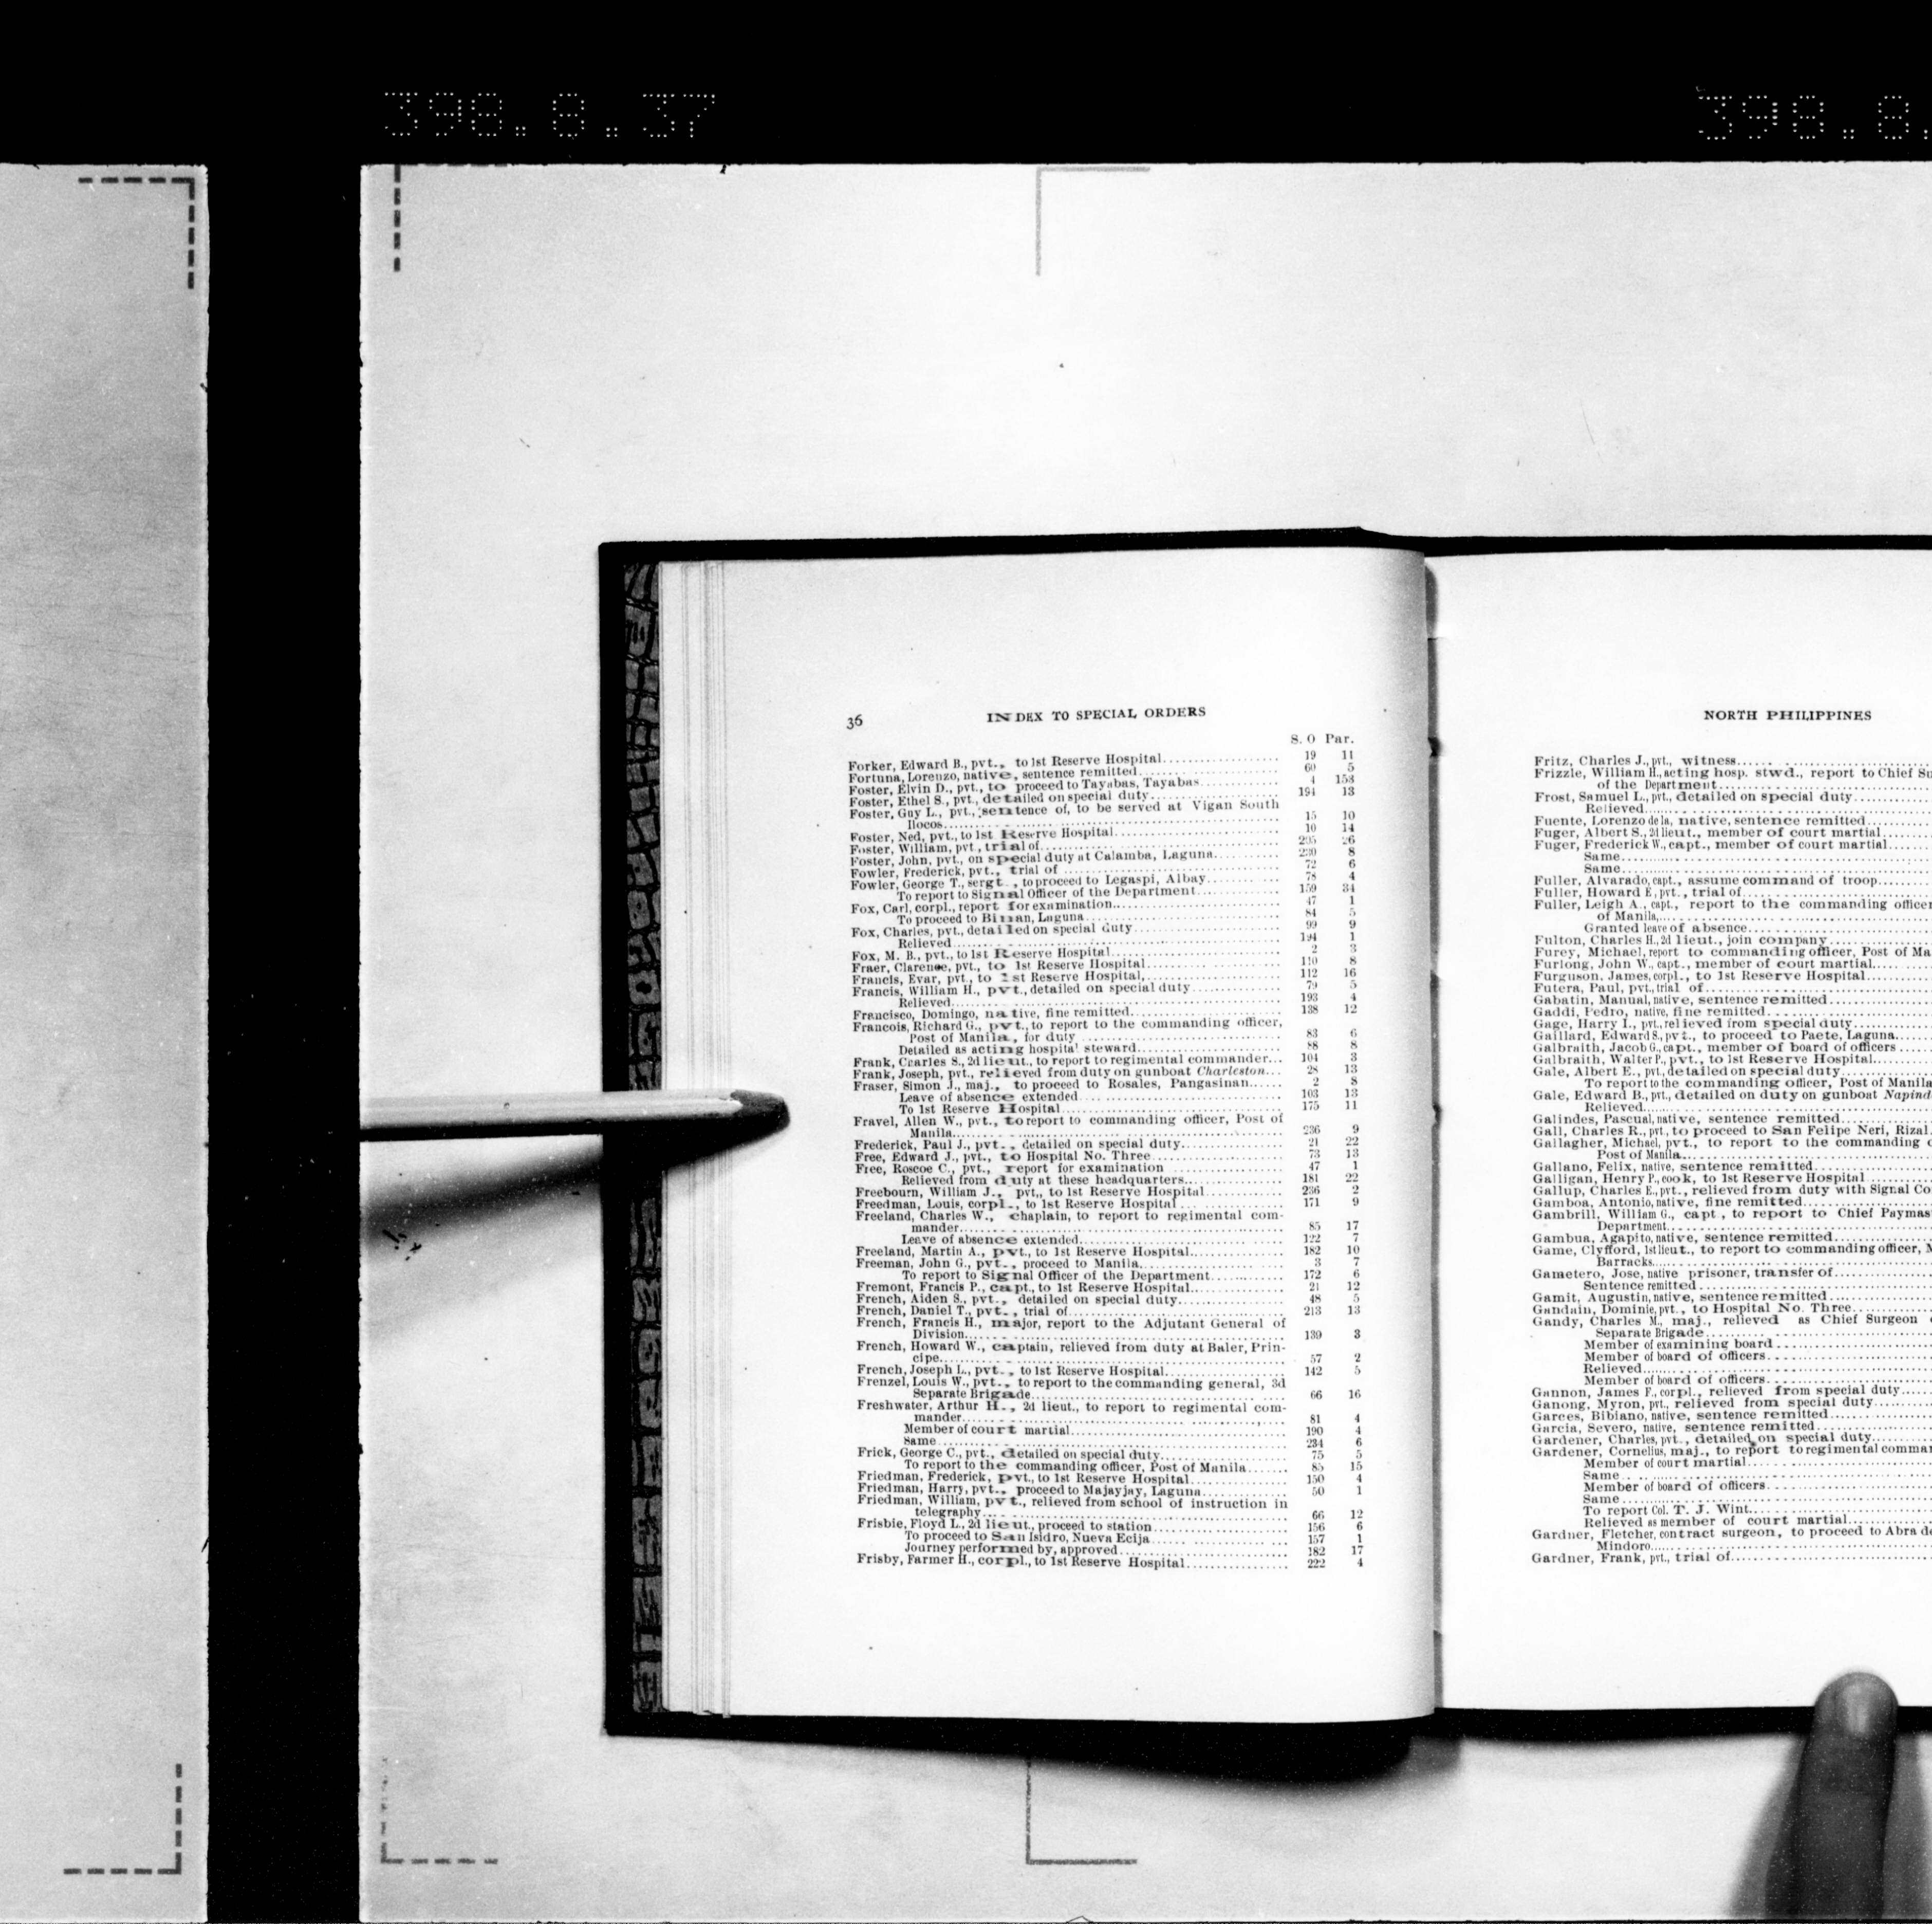 398.8.37
398.8.
36 INDEX TO SPECIAL ORDERS
S. O Par.
Forker, Edward B., pvt., to 1st Reserve Hospital 19 11
Fortuna, Lorenzo, native, sentence remitted 60 5
Foster, Elvin D., pvt., to proceed to Tayabas, Tayabas 4 158
Foster, Ethel S., pvt., detailed on special duty 194 13
Foster, Guy L., pvt., sentence of, to be served at Vigan South
Ilocos 15 10
Foster, Ned, pvt., to 1st Reserve Hospital 10 14
Foster, William, pvt, trial of 26
Foster, John, pvt., on special duty at Calamba, Laguna 230 8
Fowler, Frederick, pvt., trial of 72 6
Fowler, George T., sergt., to proceed to Legaspi, Albay 78 4
To report to Signal Officer of the Department 159 34
Fox, Carl, corpl., report for examination 47 1
To proceed to Binan, Laguna 84 5
Fox, Charles, pvt., detailed on special duty 99 9
Relieved 194 1
Fox, M. B., pvt., to 1st Reserve Hospital 2 3
Fraer, Clarence, pvt., to 1st Reserve Hospital 110 8
Francis, Evar, pvt., to 1st Reserve Hospital, 112 16
Francis, William H., pvt., detailed on special duty 79 5
Relieved 193 4
Francisco, Domingo, native, fine remitted 138 12
Francois, Richard G., pvt., to report to the commanding officer,
Post of Manila, for duty 83 6
Detailed as acting hospital steward 88 8
Frank, Charles S., 2d lieut., to report to regimental commander... 104 3
Frank, Joseph, pvt., relieved from duty on gunboat Charleston... 28 13
Fraser, Simon J., maj., to proceed to Rosales, Pangasinan 2 8
Leave of absence extended 103 13
To 1st Reserve Hospital 175 11
Fravel, Allen W., pvt., to report to commanding officer, Post of
Manila 236 9
Frederick, Paul J., pvt., detailed on special duty 21 22
Free, Edward J., pvt., to Hospital No. Three 73 13
Free, Roscoe C., pvt., report for examination 47 1
Relieved from duty at these headquarters 181 22
Freebourn, William J., pvt., to 1st Reserve Hospital 236 2
Freedman, Louis, corpl., to 1st Reserve Hospital 171 9
Freeland, Charles W., chaplain, to report to regimental com-
mander 85 17
Leave of absence extended 122 7
Freeland, Martin A., pvt., to 1st Reserve Hospital 182 10
Freeman, John G., pvt., proceed to Manila 3 7
To report to Signal Officer of the Department 172 6
Fremont, Francis P., capt., to 1st Reserve Hospital 21 12
French, Aiden S., pvt., detailed on special duty 48 5
French, Daniel T., pvt., trial of 213 13
French, Francis H., major, report to the Adjutant General of
Division 139 3
French, Howard W., captain, relieved from duty at Baler, Prin-
cipe 57 2
French, Joseph L., pvt., to 1st Reserve Hospital 142 5
Frenzel, Louis W., pvt., to report to the commanding general, 3d
Separate Brigade 66 16
Freshwater, Arthur H., 2d lieut., to report to regimental com-
mander 81 4
Member of court martial 190 4
Same 234 6
Frick, George C., pvt., detailed on special duty 75 5
To report to the commanding officer, Post of Manila 85 15
Friedman, Frederick, pvt., to 1st Reserve Hospital 150 4
Friedman, Harry, pvt., proceed to Majayjay, Laguna 50 1
Friedman, William, pvt., relieved from school of instruction in
telegraphy 66 12
Frisbie, Floyd L., 2d lieut., proceed to station 156 6
To proceed to San Isidro, Nueva Ecija 157 1
Journey performed by, approved 182 17
Frisby, Farmer H., corpl., to 1st Reserve Hospital 222 4
NORTH PHILIPPINES
Fritz, Charles J., pvt., witness
Frizzle, William H., acting hosp. stwd., report to Chief Su
of the Department
Frost, Samuel L., pvt., detailed on special duty
Relieved
Fuente, Lorenzo de la, native, sentence remitted
Fuger, Albert S., 2d lieut., member of court martial
Fuger, Frederick W., capt., member of court martial
Same
Same
Fuller, Alvarado, capt., assume command of troop
Fuller, Howard E, pvt., trial of
Fuller, Leigh A., capt., report to the commanding officer
of Manila,
Granted leave of absence
Fulton, Charles H., 2d lieut., join company
Furey, Michael, report to commanding officer, Post of Ma
Furlong, John W., capt., member of court martial
Furguson, James, corpl., to 1st Reserve Hospital
Futera, Paul, pvt., trial of
Gabatin, Manual, native, sentence remitted
Gaddi, Pedro, native, fine remitted
Gage, Harry I., pvt., relieved from special duty
Gaillard, Edward S., pvt., to proceed to Paete, Laguna
Galbraith, Jacob G., capt., member of board of officers
Galbraith, Walter P., pvt., to 1st Reserve Hospital
Gale, Albert E., pvt., detailed on special duty
To report to the commanding officer, Post of Manila
Gale, Edward B., pvt., detailed on duty on gunboat Napind
Relieved
Galindes, Pascual, native, sentence remitted
Gall, Charles R., pvt., to proceed to San Felipe Neri, Rizal
Gallagher, Michael, pvt., to report to the commanding o
Post of Manila
Gallano, Felix, native, sentence remitted
Galligan, Henry P., cook, to 1st Reserve Hospital
Gallup, Charles E., pvt., relieved from duty with Signal Co
Gamboa, Antonio, native, fine remitted
Gambrill, William G., capt, to report to Chief Paymas
Department
Gambua, Agapito, native, sentence remitted
Game, Clyfford, 1st lieut., to report to commanding officer, M
Barracks
Gametero, Jose, native prisoner, transfer of
Sentence remitted
Gamit, Augustin, native, sentence remitted
Gandain, Dominie, pvt., to Hospital No. Three
Gandy, Charles M., maj., relieved as Chief Surgeon
Separate Brigade
Member of examining board
Member of board of officers
Relieved
Member of board of officers
Gannon, James F., corpl., relieved from special duty
Ganong, Myron, pvt., relieved from special duty
Garces, Bibiano, native, sentence remitted
Garcia, Severo, native, sentence remitted
Gardener, Charles, pvt., detailed on special duty
Gardener, Cornelius, maj., to report to regimental comman
Member of court martial
Same
Member of board of officers
Same
To report Col. T. J. Wint
Relieved as member of court martial
Gardner, Fletcher, contract surgeon, to proceed to Abra de
Mindoro
Gardner, Frank, pvt., trial of